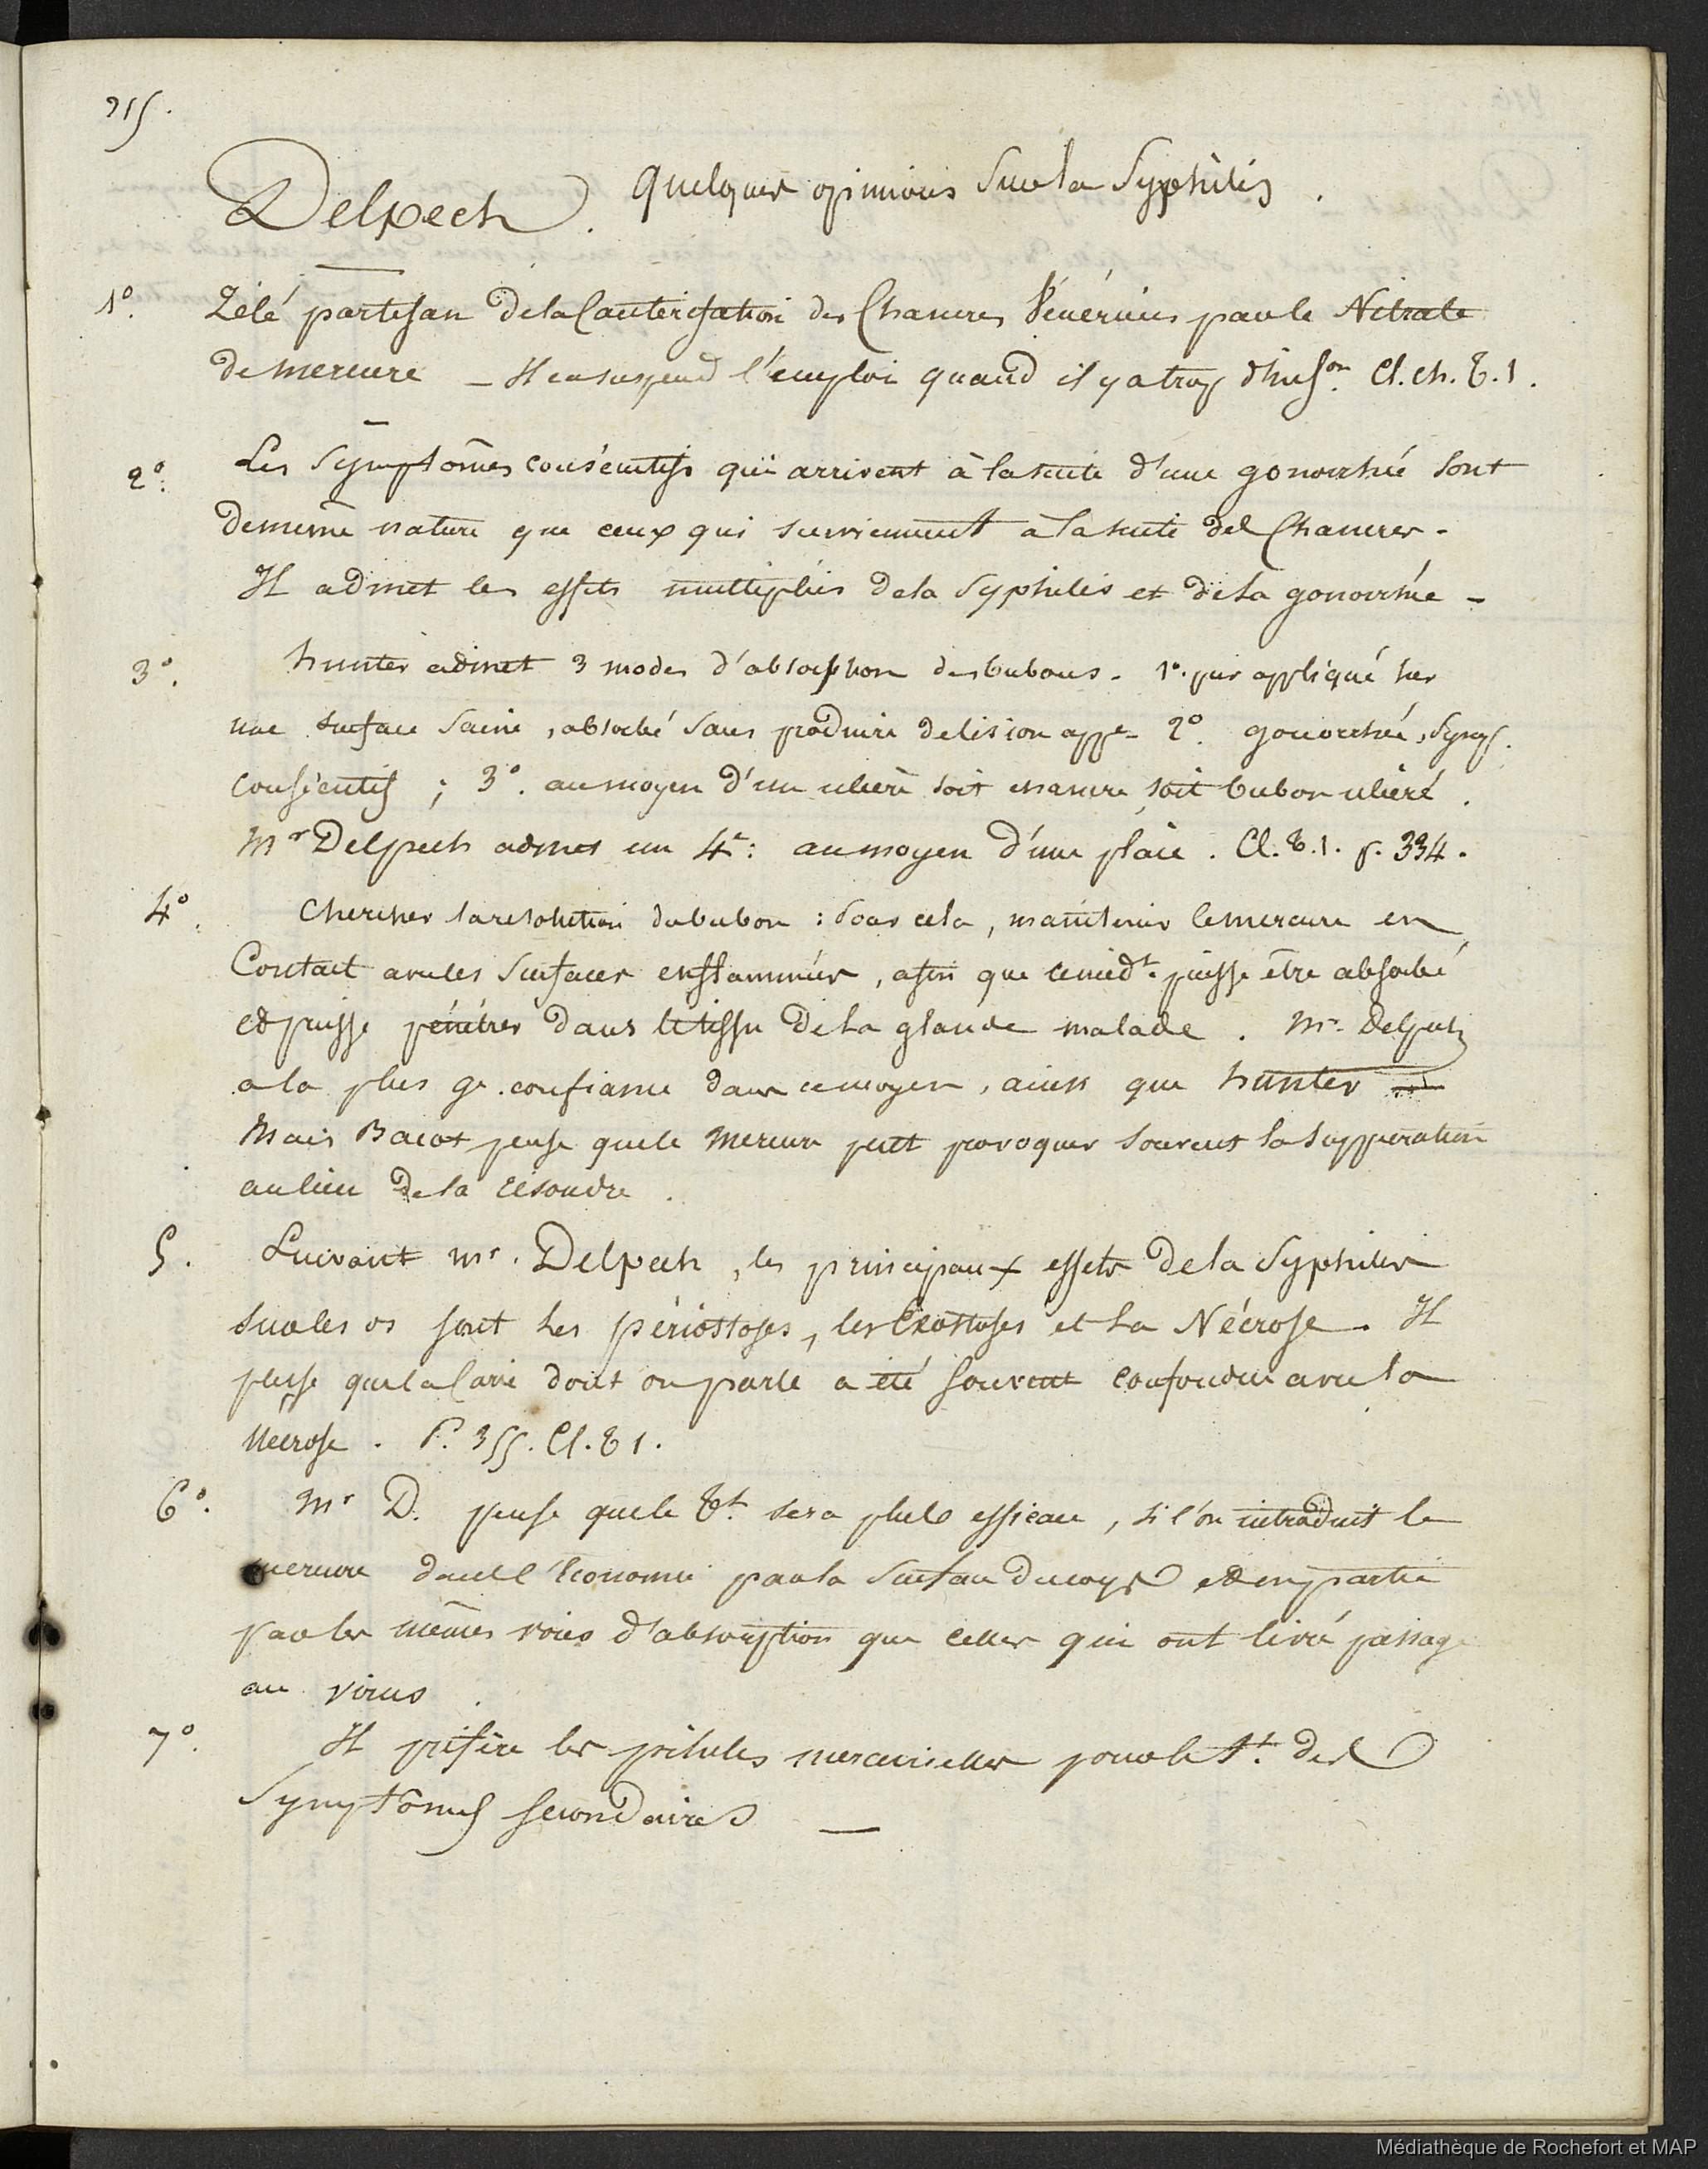 215.
Delpech. Quelques opinions sur la Syphilis.
1° Zélé partisan de la Cautérisation des Chancres Vénériens par le Nitrate
de mercure — Il en suspend l'emploi quand il y a trop d'irr.on Cl. ch. T. 1.
2° Les Symptômes consécutifs qui arrivent à la suite d'une gonorrhée sont
de même nature que ceux qui surviennent à la suite des Chancres -
Il admet les effets multipliés de la Syphilis et de la gonorrhée -
3° hunter admet 3 modes d'absorption des bubons - 1° pus appliqué sur
une surface saine, absorbé sans produire de lésion app.e 2° gonorrhée, symp.
consécutif ; 3° au moyen d'un ulcère soit chancre soit bubon ulcéré.
Mr Delpech admet un 4e: au moyen d'une plaie. Cl. T. 1. p. 334.
4° Chercher la résolution du bubon : pour cela, maintenir le mercure en
Contact avec les surfaces enflammées, afin que ce médt. puisse être absorbé
et puisse pénétrer dans le tissu de la glande malade. Mr Delpech
a la plus ge. confiance dans ce moyen, ainsi que hunter
Mais Bacot pense que le Mercure peut provoquer souvent la suppuration
au lieu de la résoudre.
5. Suivant Mr. Delpech, les principaux effets de la Syphilis
sur les os sont les périostoses, les Exostoses et la Nécrose. Il
pense que la Carie dont on parle a été souvent confondue avec la
Nécrose. P. 355. Cl. T 1.
6° Mr D. pense que le Tt. sera plus efficace, si l'on introduit le
mercure dans l'économie par la surface du corps et en partie
par les mêmes voies d'absorption que celles qui ont livré passage
au virus.
7° Il préfère les pilules mercurielles pour le tt. des
Symptômes secondaires —
Médiathèque de Rochefort et MAP